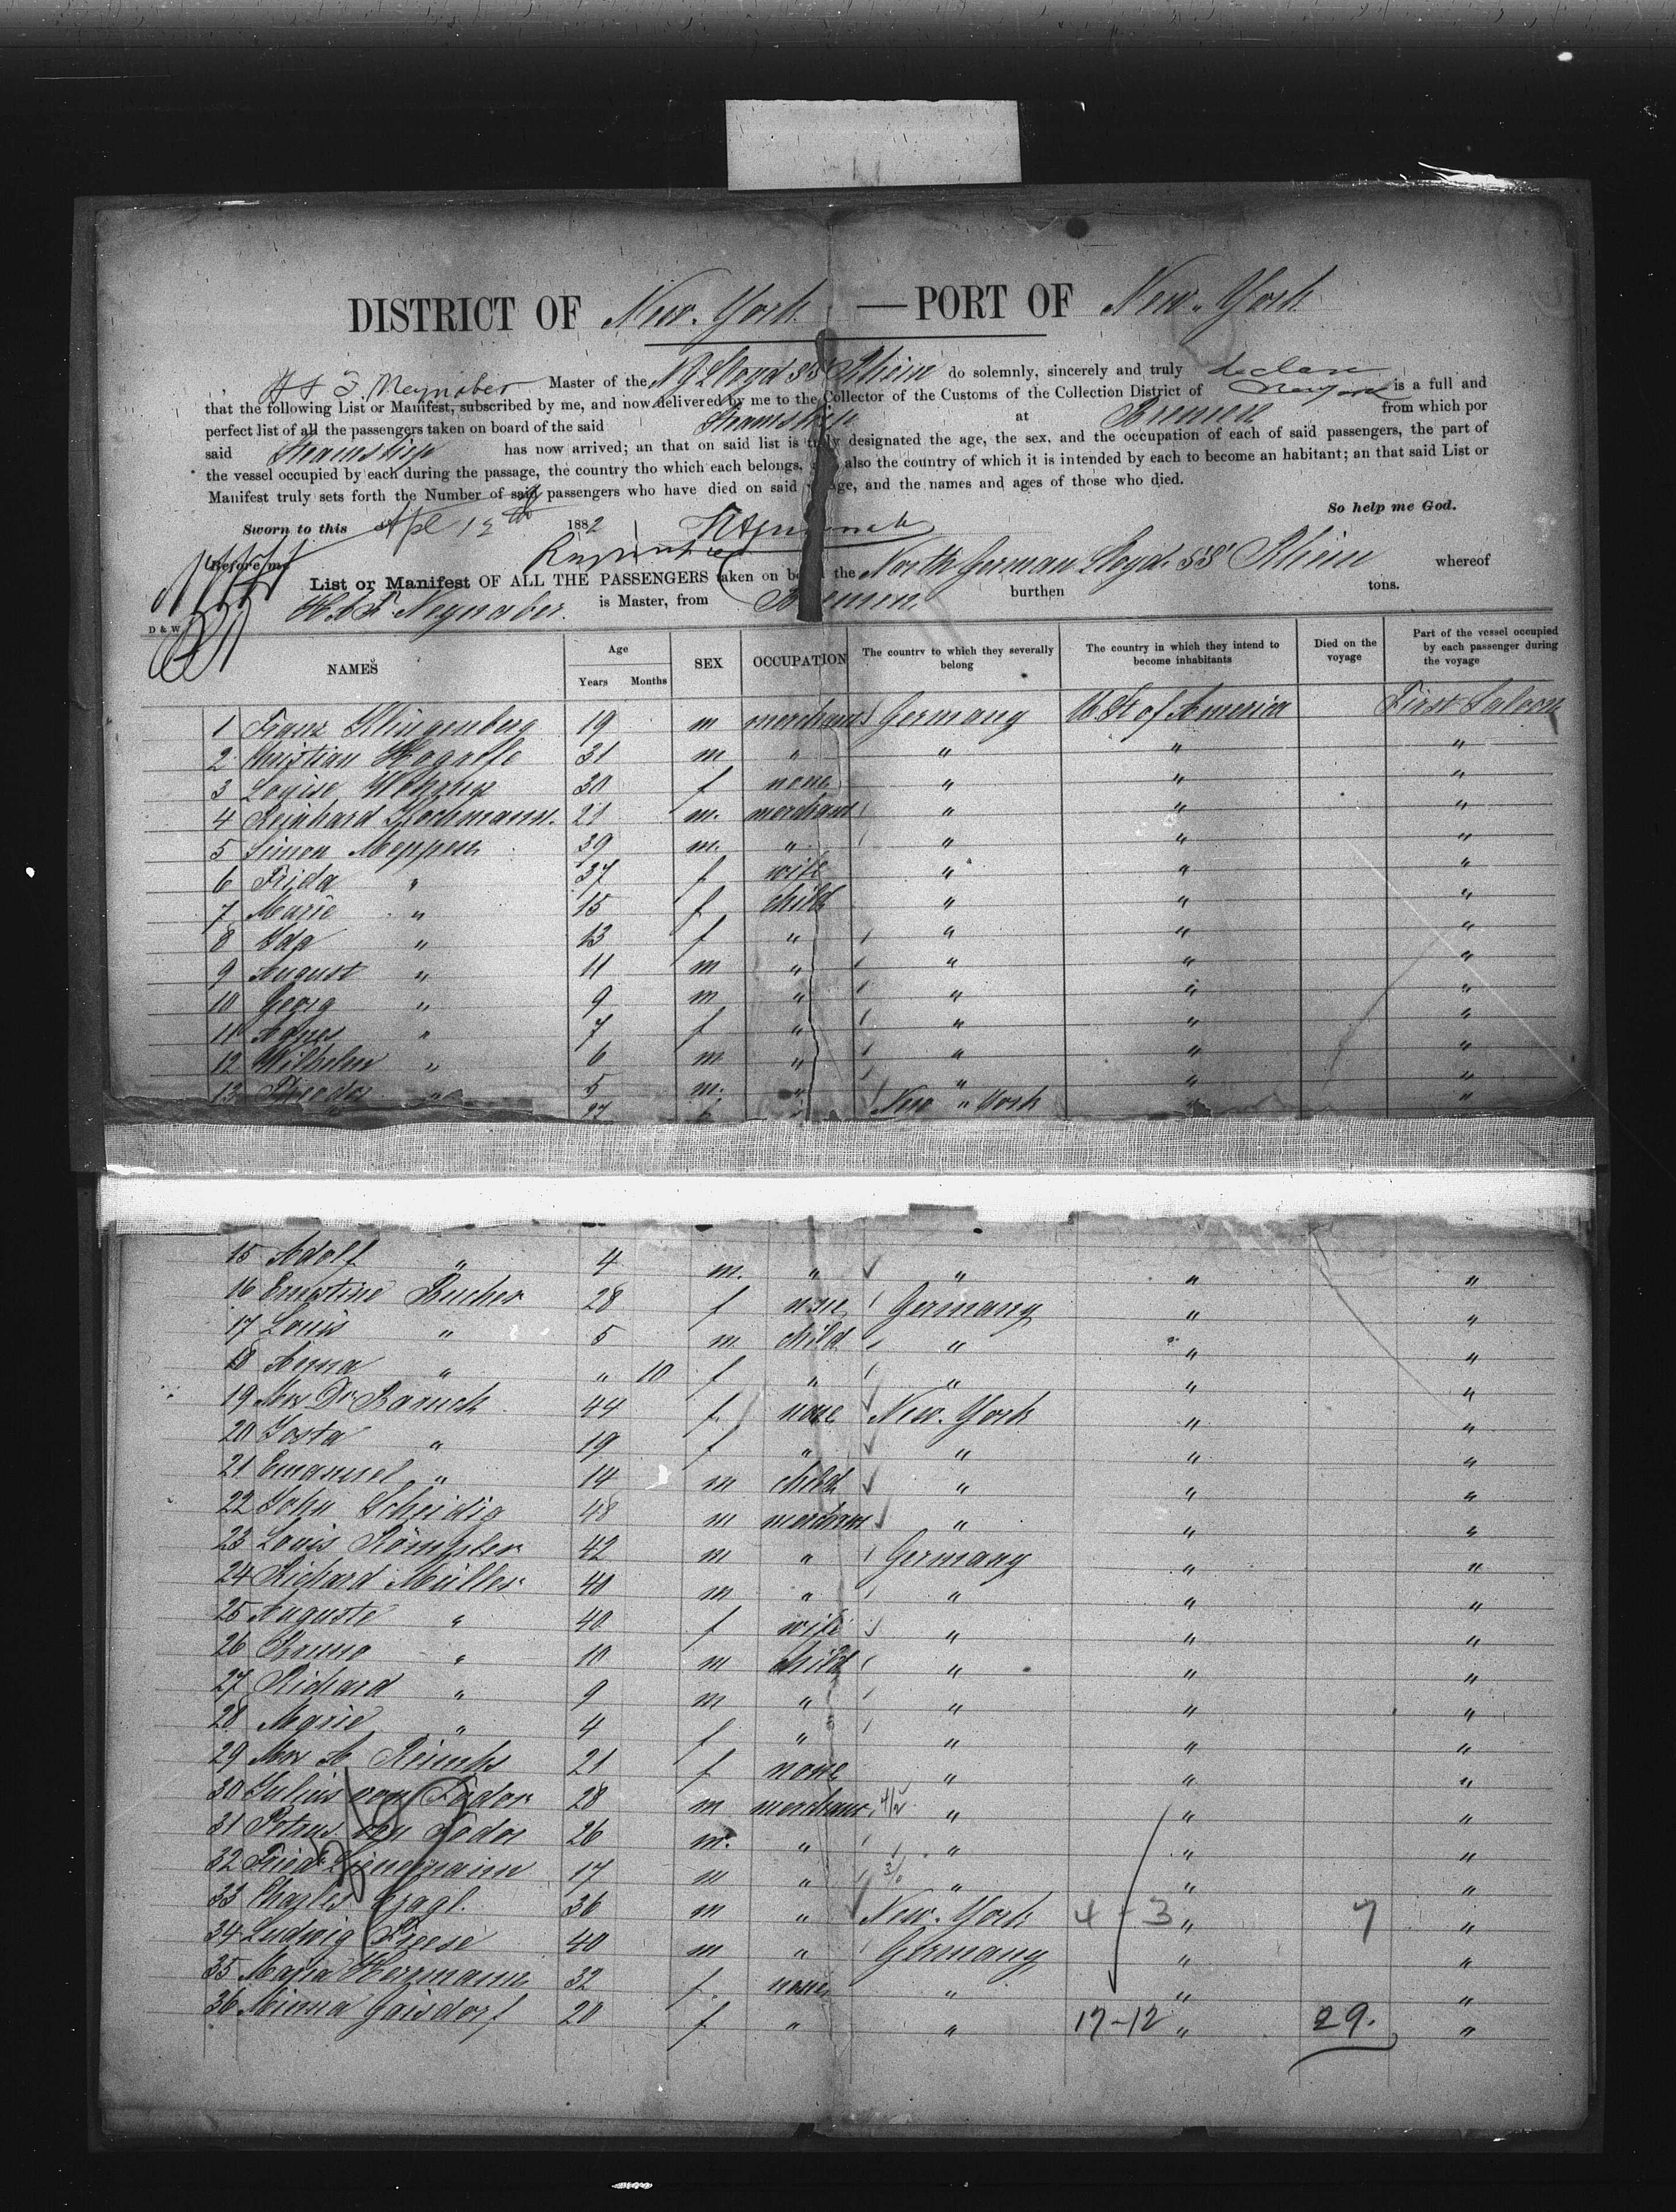 DISTRICT OF New. York — PORT OF New. York
H A F Neynaber Master of the N G Lloyd SS Rhein do solemnly, sincerely and truly declare
that the following List or Manifest, subscribed by me, and now delivered by me to the Collector of the Customs of the Collection District of New York is a full and
perfect list of all the passengers taken on board of the said Steamship at Bremen from which por
said Steamship has now arrived; an that on said list is truly designated the age, the sex, and the occupation of each of said passengers, the part of
the vessel occupied by each during the passage, the country tho which each belongs, also the country of which it is intended by each to become an habitant; an that said List or
Manifest truly sets forth the Number of said passengers who have died on said voyage, and the names and ages of those who died.
So help me God.
Sworn to this Apl 12th 1882
Before me
List or Manifest OF ALL THE PASSENGERS taken on board the North German Lloyd. SS' Rhein whereof
H.A.F. Neynaber. is Master, from Bremen. burthen tons.
D & W
NAMES Age Years Months SEX OCCUPATION The country to which they severally belong The country in which they intend to become inhabitants Died on the voyage Part of the vessel occupied by each passenger during the voyage
1 Franz Klingenberg 19 m merchant Germany U. St of America First Saloon
2 Christian Hogrefe 31 m " " " "
3 Louise 30 f none " " "
4 Reinhard Kochmann. 21 m. merchant " " "
5 Simon Meppen 39 m. " " " "
6 Frida " 37 f wife " " "
7 Marie " 15 f child " " "
8 Ida " 13 f " " " "
9 August " 11 m " " " "
10 Georg " 9 m " " " "
11 Agnes " 7 f " " " "
12 Wilhelm " 6 m " " " "
13 Theodor " 5 m. " " " "
27 f " New York " "
15 Adolf " 4 m. " " " "
16 Ernestine Bucher 28 f none Germany " "
17 Louis " 5 m child " " "
18 Anna " " 10 f " " " "
19 Mrs Dr Baruch 44 f. none New. York " "
20 Josta " 19 f " " " "
21 Emanuel " 14 m child " " "
22 John Scheidig 48 m merchant " " "
23 Louis Römpler 42 m " Germany " "
24 Richard Müller 40 m " " " "
25 Auguste " 40 f wife " " "
26 Bruno " 10 m child " " "
27 Richard " 9 m " " " "
28 Marie " 4 f " " " "
29 Mrs A 21 f none " " "
30 Julius von Fodor 28 m merchant " " "
31 Petrus von Fodor 26 m. " " " "
32 Friedr Lienemann 17 m " " " "
33 Charles 36 m " New. York 4-3 " 7 "
34 Ludwig Freese 40 m " Germany " "
35 Maria Herrmann 32 f. none " " "
36 Minna Gaisdorf 20 f " " 17-12 " 29. "